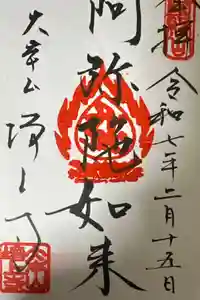 奉拝
令和七年二月十五日
阿弥陀如来
大幸山
浄土寺